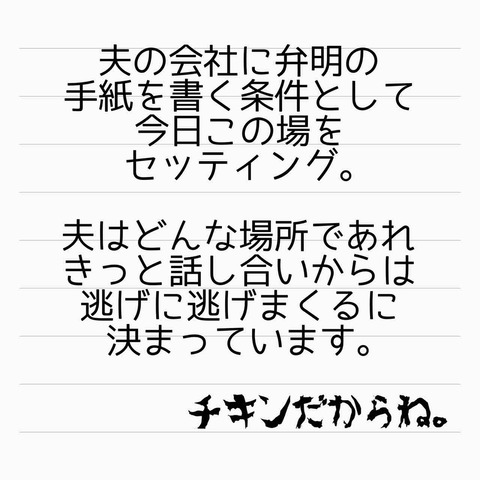 夫の会社に弁明の
手紙を書く条件として
今日この場を
セッティング。
夫はどんな場所であれ
きっと話し合いからは
逃げに逃げまくるに
決まっています。
チキンだからね。